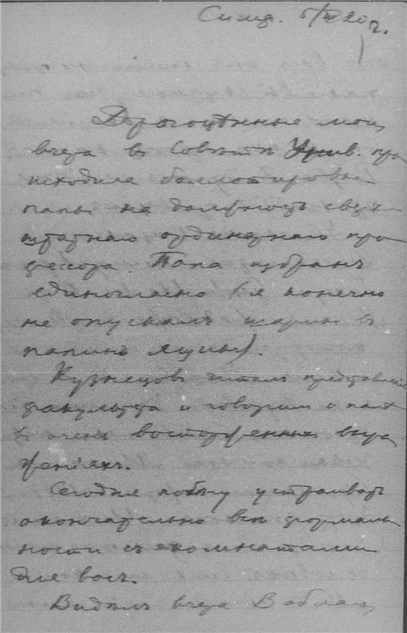 Симф. 5/III 20 г.
Драгоцѣнные мои,
вчера в Совѣтѣ Унив. про
исходила баллотировка
папы на должность сверх
штатнаго ординарнаго про
фессора. Папа избранъ
единогласно (я конечно
не опускалъ шарик в
папинъ ящикъ).
Кузнецов читал представление
факультета и говорил о папѣ
в очень восторженных выра
женіяхъ.
Сегодня побѣгу устраивать
окончательно всѣ формаль
ности съ комнатами
для васъ.
Видѣлъ вчера